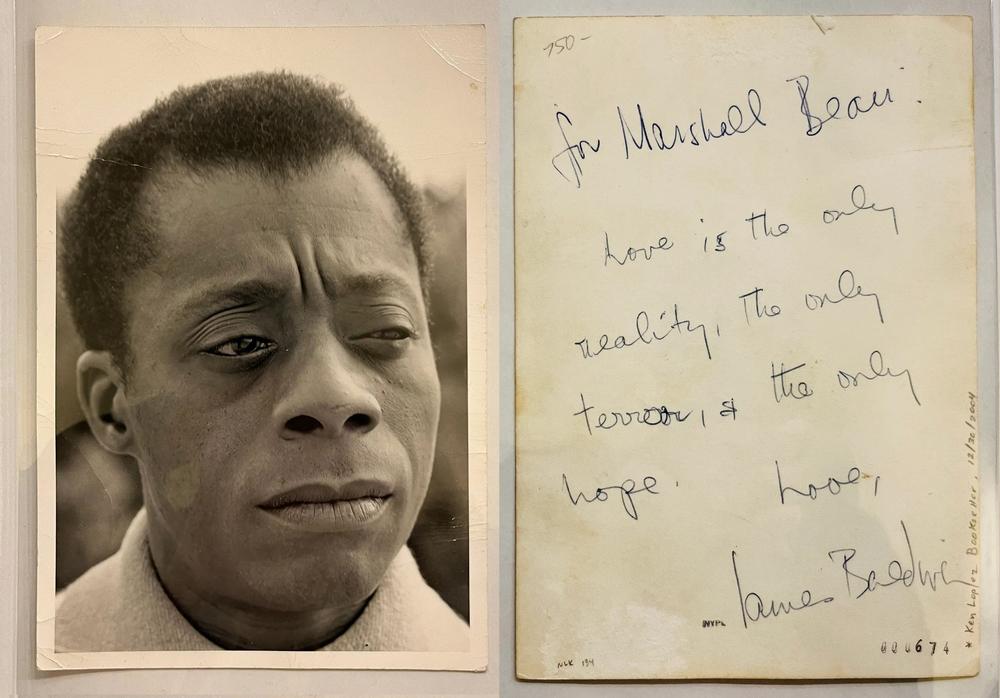 750-
for Marshall Bean:
Love is the only
reality, the only
terror, & the only
hope. Love,
James Baldwin
NYPL
000674
NLK 134
* Ken Lopez Bookseller, 12/30/2004